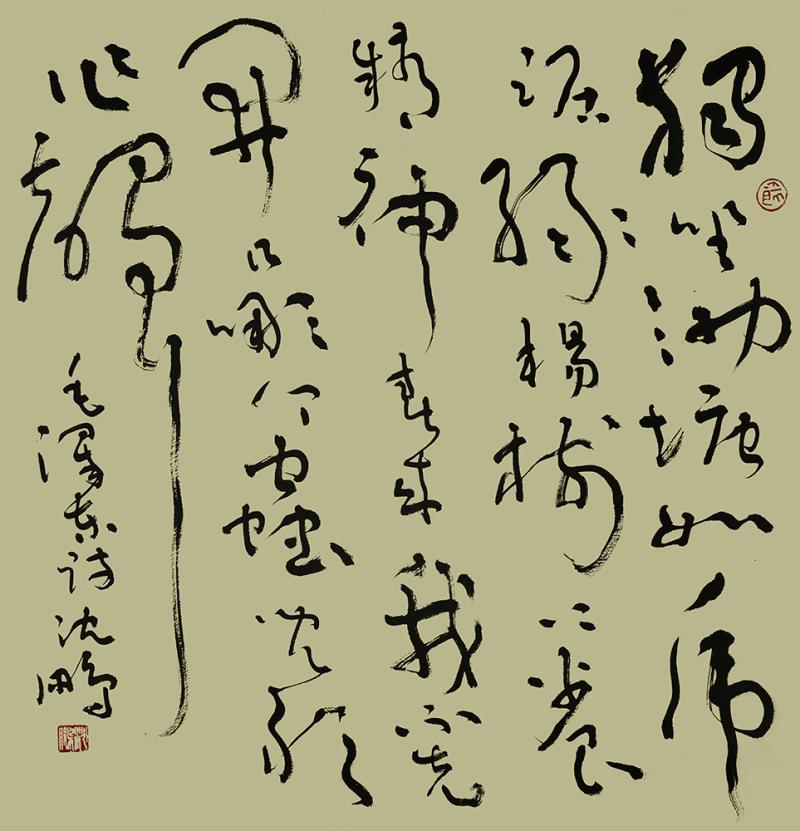 獨坐池塘如虎
踞綠楊樹下養
精神春來我不先
開口哪個蟲兒敢
作聲
毛澤東詩沈鵬